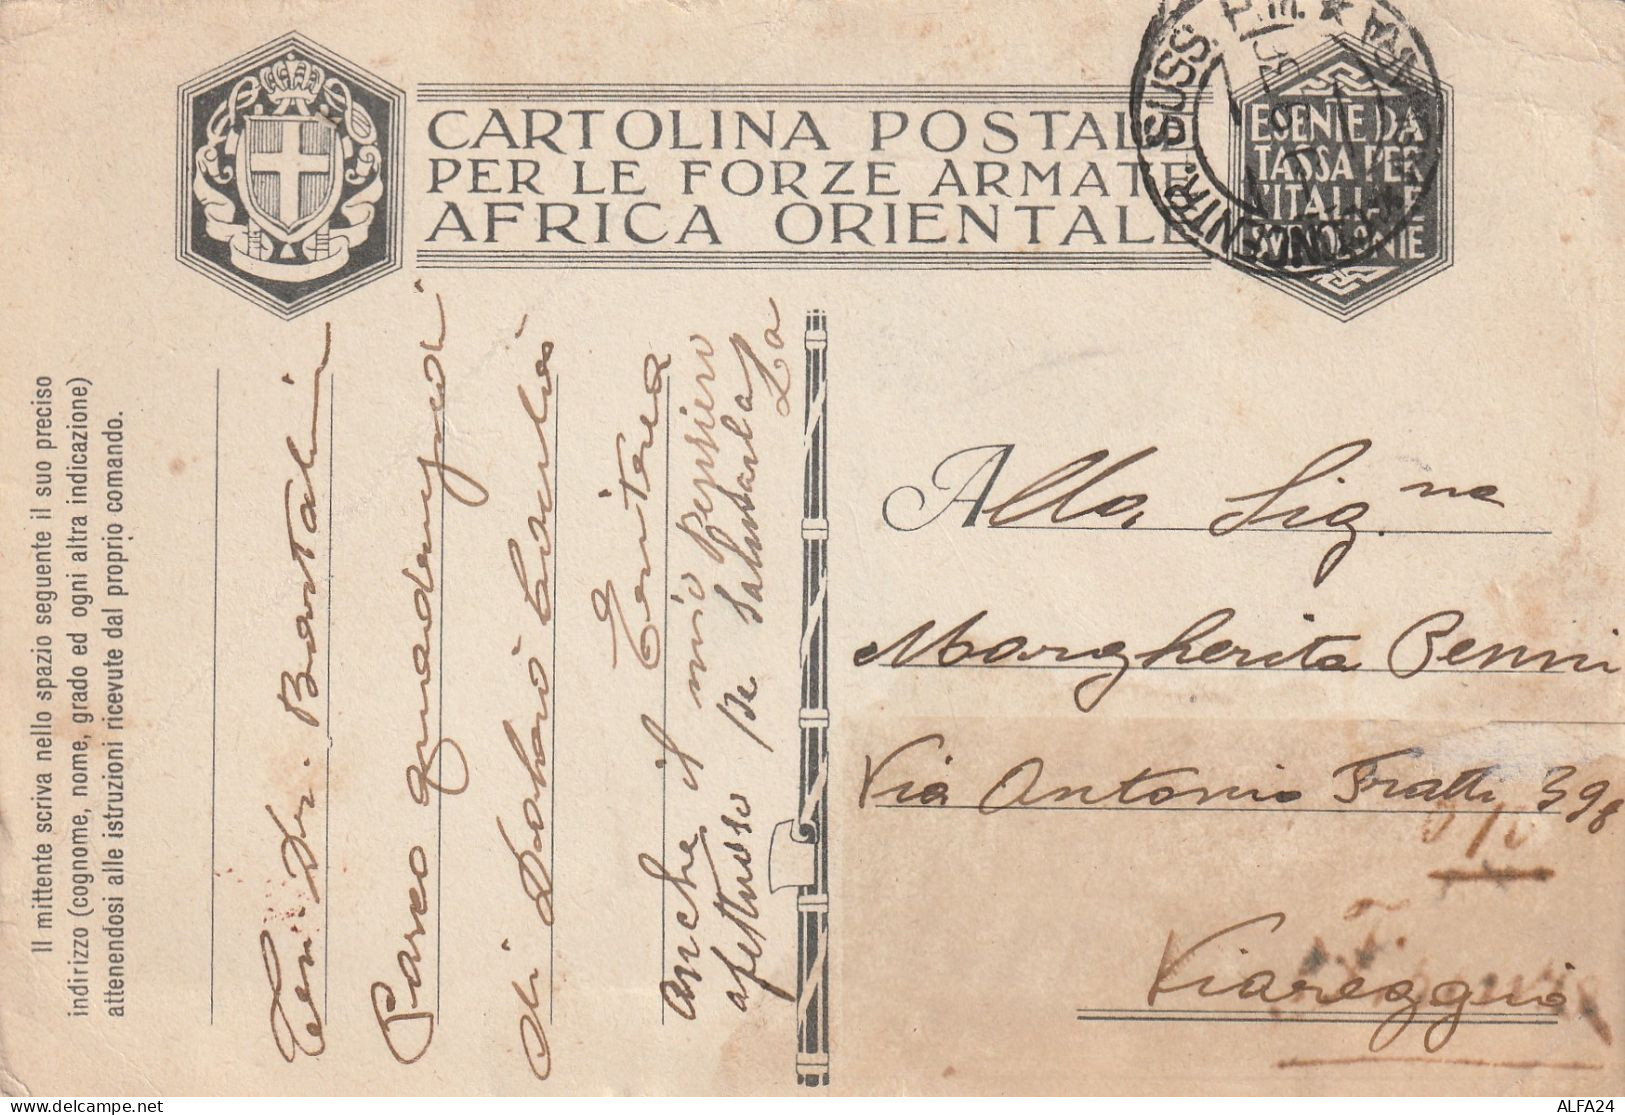 CARTOLINA POSTALE
PER LE FORZE ARMATE
AFRICA ORIENTALE
ESENTE DA
TASSA PER
L'ITALIA E
SUE COLONIE
CENTR. SUSS.
Il mittente scriva nello spazio seguente il suo preciso
indirizzo (cognome, nome, grado ed ogni altra indicazione)
attenendosi alle istruzioni ricevute dal proprio comando.
Ten. Dr. Bartalini
Parco quadrupedi
di
Eritrea
Anche il mio pensiero
affettuoso
Alla Sig.na
Margherita Penni
Via Antonio Fratti 398
Viareggio
ALFA24